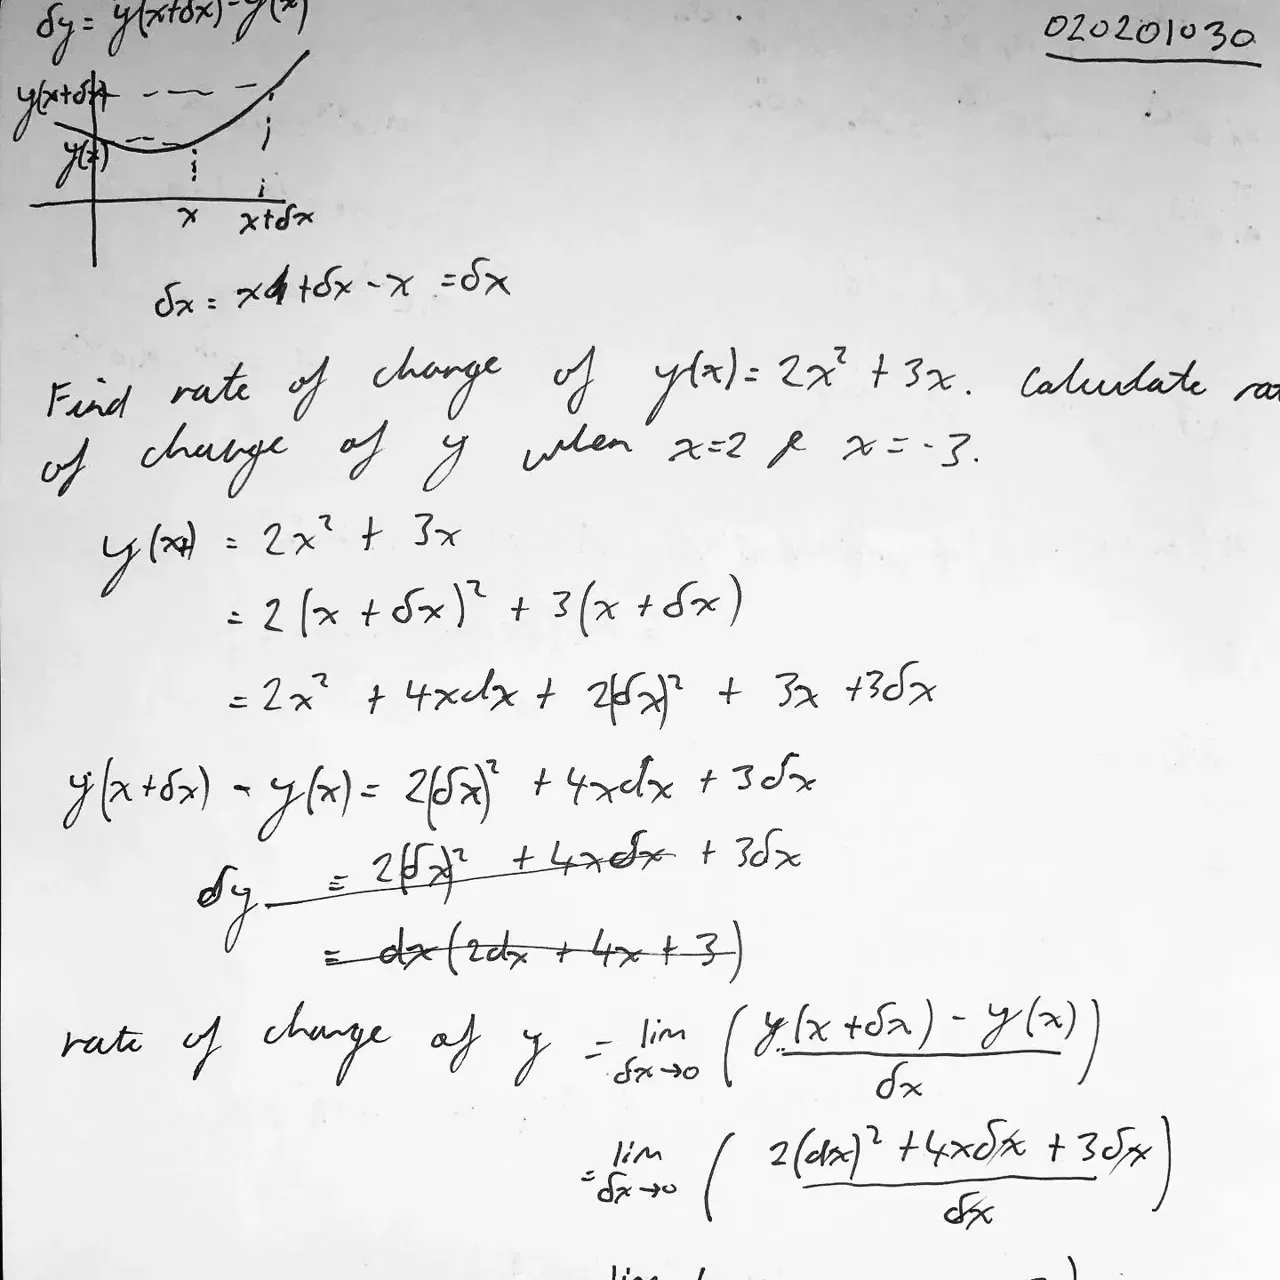 δy = y(x+δx) - y(x)
020201030
y(x+δx)
y(x)
x
x+δx
δx = x + δx - x = δx
Find rate of change of y(x) = 2x² + 3x. Calculate
of change of y when x=2 & x = -3.
y(x) = 2x² + 3x
= 2(x + δx)² + 3(x + δx)
= 2x² + 4xdx + 2(δx)² + 3x + 3δx
y(x+δx) - y(x) = 2(δx)² + 4xdx + 3δx
δy = 2(δx)² + 4xδx + 3δx
= dx(2dx + 4x + 3)
rate of change of y = lim δx→0 (y(x+δx) - y(x) / δx)
= lim δx→0 (2(dx)² + 4xδx + 3δx / δx)
lim